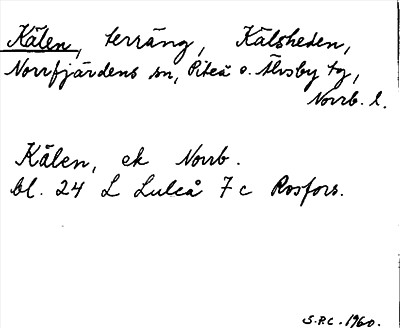 Kälen, terräng, Kälsheden,
Norrfjärdens sn, Piteå o. Älvsby tg,
Norrb. l.
Kälen, ek Norrb.
bl. 24 L Luleå 7 c Rosfors.
S.P.C. 1960.